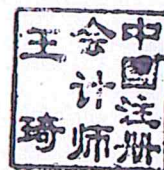 中国注册
会计师
王琦